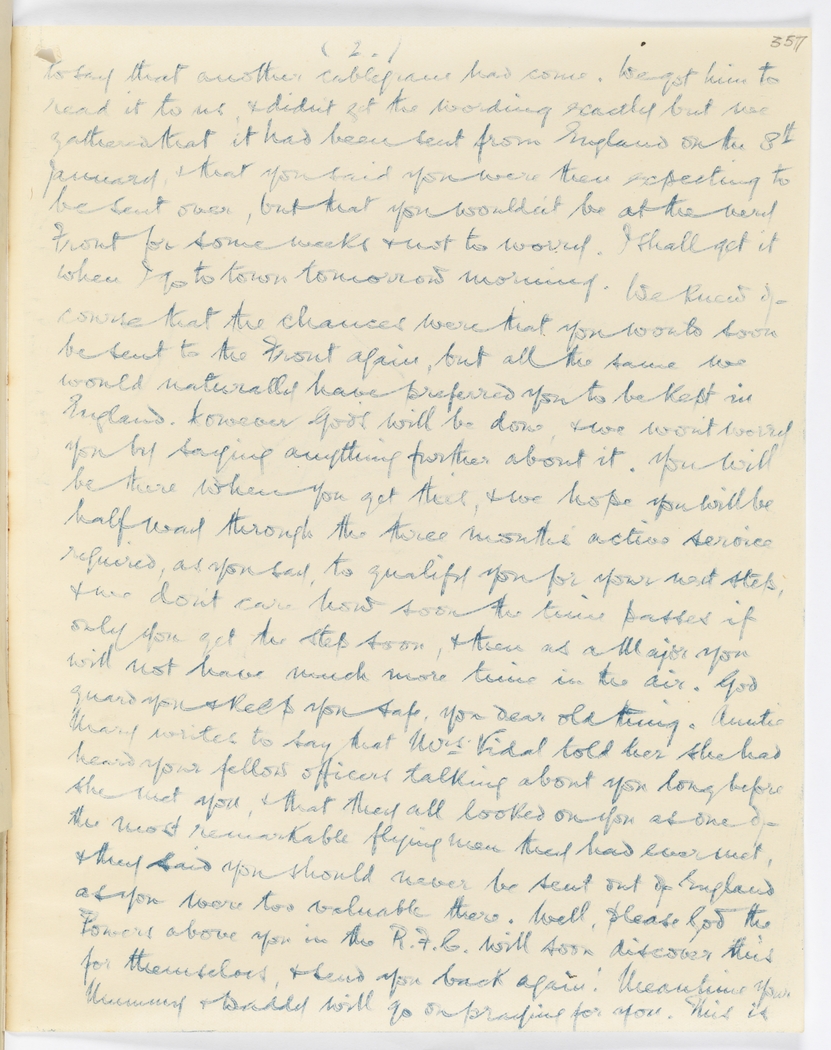 (2.)
357
to say that another cablegram had come. We got him to
read it to us, & didn't get the wording exactly but we
gathered that it had been sent from England on the 8th
January, & that you said you were then expecting to
be sent over, but that you wouldn't be at the very
Front for some weeks & not to worry. I shall get it
when I go to town tomorrow morning. We knew of
course that the chances were that you would soon
be sent to the Front again, but all the same we
would naturally have preferred you to be kept in
England. However God's will be done, & we won't worry
you by saying anything further about it. You will
be there when you get this, & we hope you will be
half way through the three months active service
required, as you say, to qualify you for your next step;
& we don't care how soon the time passes if
only you get the step soon, & then as a Major you
will not have much more time in the air. God
guard you & keep you safe, you dear old thing. Auntie
Mary writes to say that Mrs Vidal told her she had
heard your fellow officers talking about you long before
she met you, & that they all looked on you as one of
the most remarkable flying men they had ever met,
& they said you should never be sent out of England
as you were too valuable there. Well, please God the
Powers above you in the R.F.C. will soon discover this
for themselves, & send you back again! Meantime your
Mummy & Daddy will go on praying for you. This is